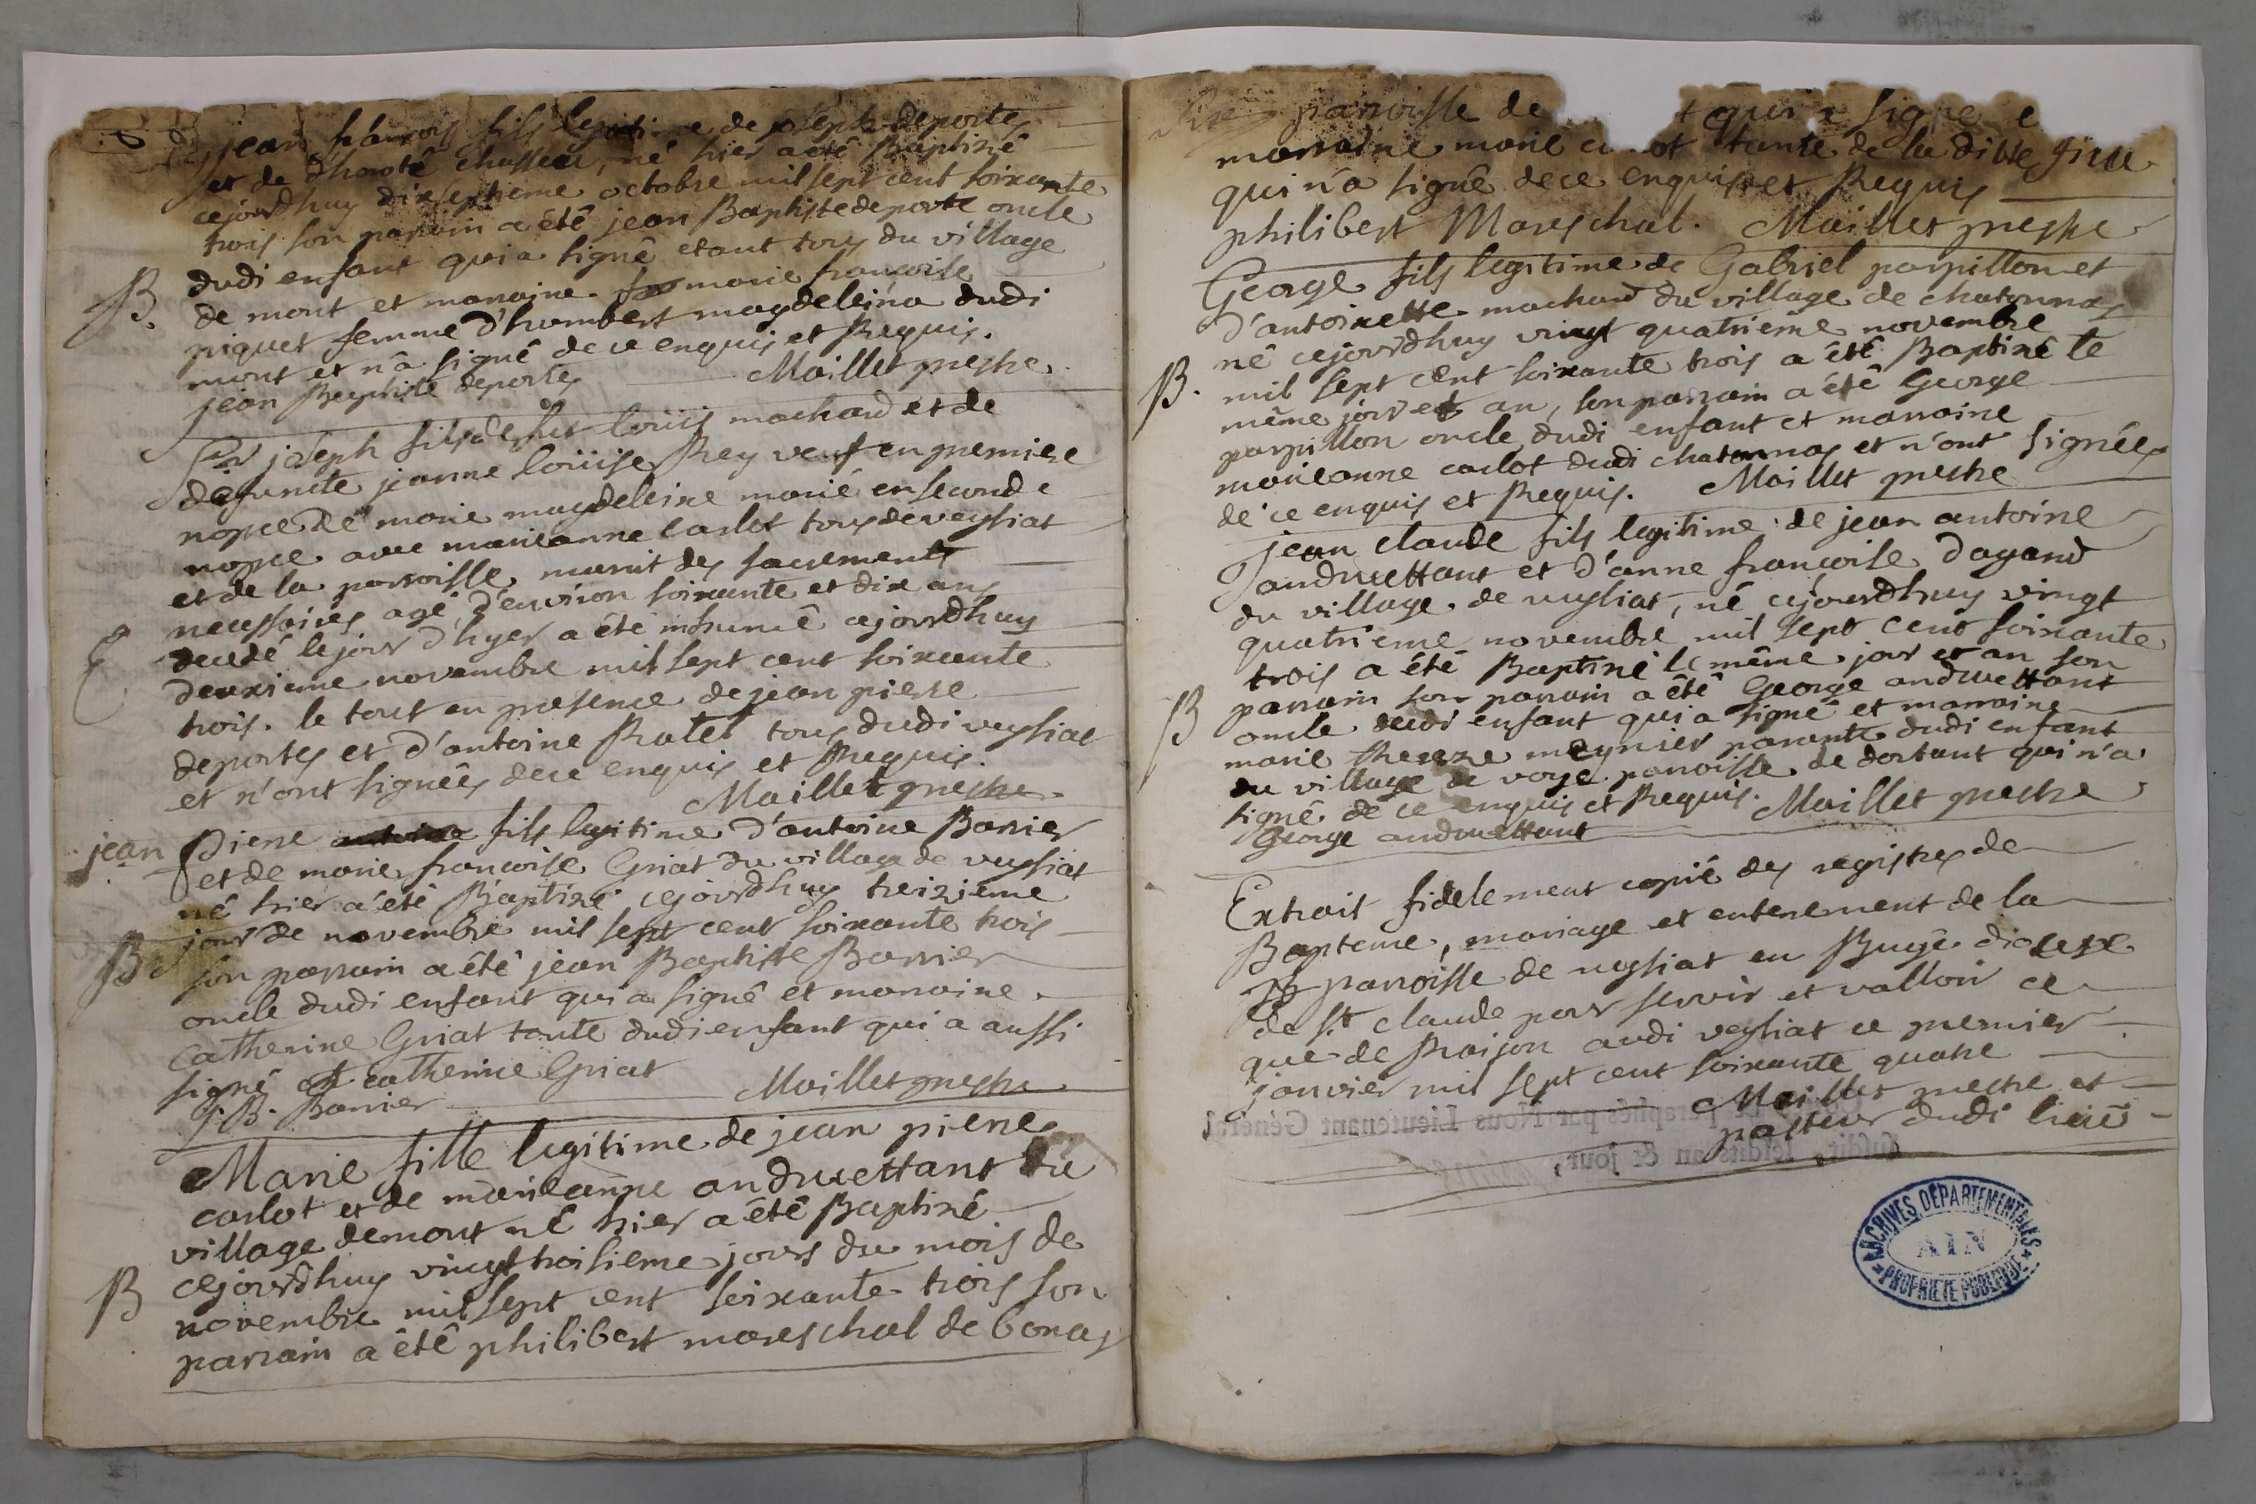 jean françois fils legitime de joseph deportes
et de d'horotê chasseur, né hier a eté Baptizé
cejourdhuy dixseptieme octobre mil sept cent soixante
trois son parrain a été jean Baptiste deporte oncle
dudi enfant qui a signé etant tous du village
B. de mont et marraine marie françoise
piquet femme d'humbert magdeleina dudi
mont et n'a signé de ce enquis et Requis.
jean Baptiste deportes Maillet prestre
joseph fils de louis machard et de
defuncte jeanne loüise Rey veuf en premiere
nopce de marie magdeleine marié en seconde
nopce avec marieanne carlot tous de veysiat
et de la parroisse, munit des sacrements
necessaires agé d'environ soixante et dix ans
E decedé le jour d'hyer a été inhumé cejourdhuy
deuxieme novembre mil sept cent soixante
trois. le tout en presence de jean pierre
deportes et d'antoine Ratel tous dudi veysiat
et n'ont signées de ce enquis et Requis.
Maillet prestre
jean Pierre fils legitime d'antoine Barrier
et de marie françoise Griat du village de veysiat
né hier a été Baptizé cejourdhuy treizieme
jour de novembre mil sept cent soixante trois
B son parrain a été jean Baptiste Barrier
oncle dudi enfant qui a signé et marraine
Catherine Griat tante dudi enfant qui a aussi
signé catherine Griat
J. B. Barrier Maillet prestre
Marie fille legitime de jean pierre
carlot et de marieanne andruettant du
village de mont né hier a été Baptizé
B cejourdhuy vingt troisieme jours du mois de
novembre mil sept cent soixante trois son
parrain a été philibert mareschal de bonas
parroisse de qui a signe e
marraine marie tante de la dite fille
qui n'a signé de ce enquis et Requis
philibert Mareschal. Maillet prestre
George fils legitime de Gabriel parpillon et
d'antoinette machard du village de chatonnas
né cejourdhuy vingt quatrieme novembre
B. mil sept cent soixante trois a été Baptizé le
même jour et an, son parrain a été George
parpillon oncle dudi enfant et marraine
marieanne carlot dudi chatonnas et n'ont signées
de ce enquis et Requis. Maillet prestre
jean claude fils legitime de jean antoine
andruettant et d'anne françoise dagand
du village de veysiat, né cejourdhuy vingt
quatrieme novembre mil sept cent soixante
trois a été Baptizé le même jour et an son
B parrain son parrain a été George andruettant
oncle dudi enfant qui a signé et marraine
marie therese meynier parante dudi enfant
du village de voye parroisse de dortant qui n'a
signé de ce enquis et Requis. Maillet prestre
George andruettant
Extrait fidelement copié des registres de
Bapteme, mariage et enterement de la
parroisse de veysiat en Bugê diocese
de st claude pour servir et valloir ce
que de Raijon audi veysiat ce premier
janvier mil sept cent soixante quatre
Maillet prestre et
pasteur dudi lieu
ARCHIVES DÉPARTEMENTALES
AIN
PROPRIÉTÉ PUBLIQUE